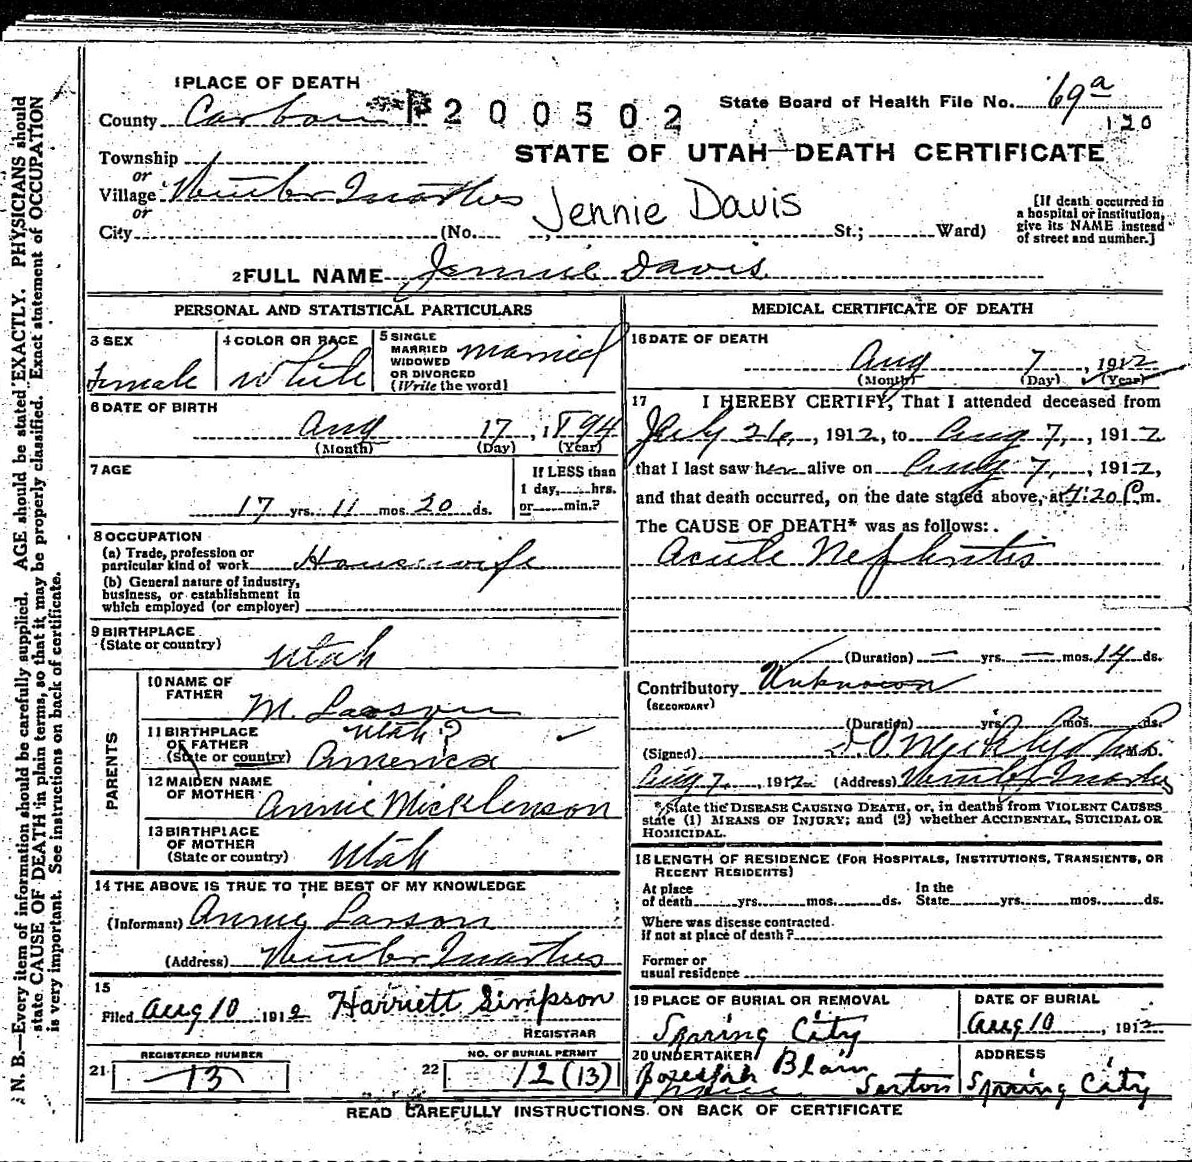 1 PLACE OF DEATH
County Carbon
200502
State Board of Health File No. 69a
120
STATE OF UTAH—DEATH CERTIFICATE
Township
or
Village Winter Quarters
or
City (No. , St.; Ward)
Jennie Davis
[If death occurred in
a hospital or institution,
give its NAME instead
of street and number.]
2 FULL NAME Jennie Davis
PERSONAL AND STATISTICAL PARTICULARS
3 SEX
female
4 COLOR OR RACE
White
5 SINGLE
MARRIED
WIDOWED
OR DIVORCED
(Write the word)
married
6 DATE OF BIRTH
Aug 17, 1894
(Month) (Day) (Year)
7 AGE
17 yrs. 11 mos. 20 ds.
If LESS than
1 day, hrs.
or min.?
8 OCCUPATION
(a) Trade, profession or
particular kind of work Housewife
(b) General nature of industry,
business, or establishment in
which employed (or employer)
9 BIRTHPLACE
(State or country)
Utah
PARENTS
10 NAME OF
FATHER
M. Larson
11 BIRTHPLACE
OF FATHER
(State or country)
Utah?
America
12 MAIDEN NAME
OF MOTHER
Annie Micklenson
13 BIRTHPLACE
OF MOTHER
(State or country)
Utah
14 THE ABOVE IS TRUE TO THE BEST OF MY KNOWLEDGE
(Informant) Annie Larson
(Address) Winter Quarters
15
Filed Aug 10 1912 Harriett Simpson
REGISTRAR
21 REGISTERED NUMBER
13
22 NO. OF BURIAL PERMIT
12 (13)
MEDICAL CERTIFICATE OF DEATH
16 DATE OF DEATH
Aug 7, 1912
(Month) (Day) (Year)
17 I HEREBY CERTIFY, That I attended deceased from
July 26, 1912, to Aug 7, 1912
that I last saw her alive on Aug 7, 1912,
and that death occurred, on the date stated above, at 4:20 P.m.
The CAUSE OF DEATH* was as follows:
Acute Nephritis
(Duration) — yrs. — mos. 14 ds.
Contributory Unknown
(SECONDARY)
(Duration) yrs. mos. ds.
(Signed) M.D.
Aug 7, 1912 (Address) Winter Quarters
*State the DISEASE CAUSING DEATH, or, in deaths from VIOLENT CAUSES
state (1) MEANS OF INJURY; and (2) whether ACCIDENTAL, SUICIDAL OR
HOMICIDAL.
18 LENGTH OF RESIDENCE (FOR HOSPITALS, INSTITUTIONS, TRANSIENTS, OR
RECENT RESIDENTS)
At place
of death yrs. mos. ds.
In the
State yrs. mos. ds.
Where was disease contracted.
if not at place of death?
Former or
usual residence
19 PLACE OF BURIAL OR REMOVAL
Spring City
DATE OF BURIAL
Aug 10, 1912
20 UNDERTAKER
Blain
Sexton
ADDRESS
Spring City
READ CAREFULLY INSTRUCTIONS ON BACK OF CERTIFICATE
N. B.—Every item of information should be carefully supplied. AGE should be stated EXACTLY. PHYSICIANS should
state CAUSE OF DEATH in plain terms, so that it may be properly classified. Exact statement of OCCUPATION
is very important. See instructions on back of certificate.